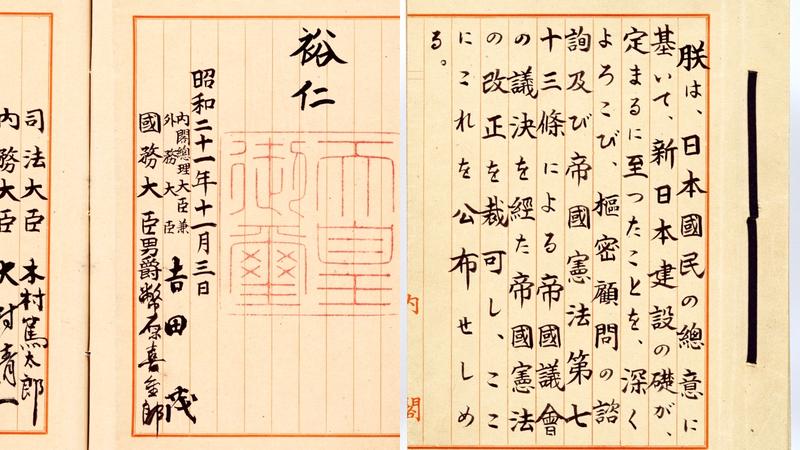 朕は、日本國民の總意に
基いて、新日本建設の礎が、
定まるに至つたことを、深く
よろこび、樞密顧問の諮
詢及び帝國憲法第七
十三條による帝國議會
の議決を經た帝國憲法
の改正を裁可し、ここ
にこれを公布せしめ
る。
内閣
裕仁
天皇
御璽
昭和二十一年十一月三日
内閣總理大臣兼
外務大臣 吉田茂
國務大臣 男爵 幣原喜重郎
司法大臣 木村篤太郎
内務大臣 大村清一